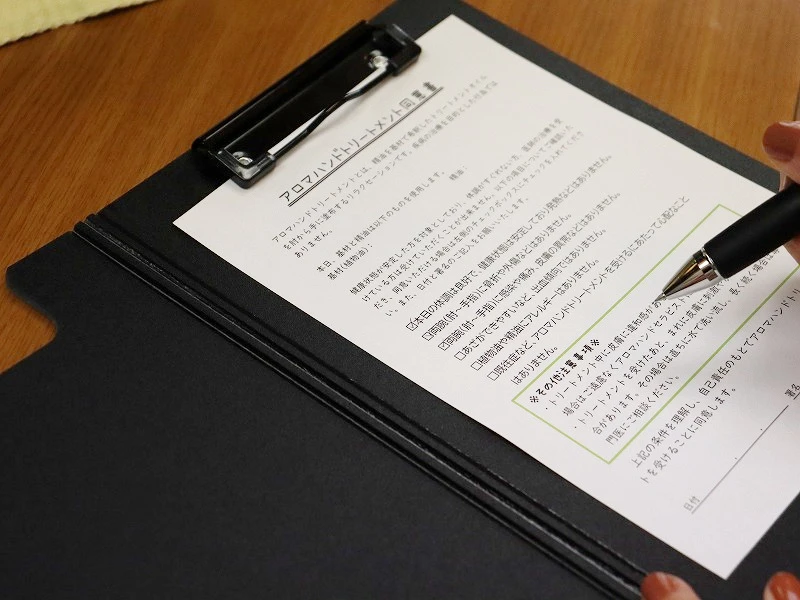 アロマハンドトリートメント同意書
アロマハンドトリートメントとは、精油を基材で希釈したトリートメントオイル
を肘から手に塗布するリラクゼーションです。疾病の治療を目的とした行為では
ありません。
本日、基材と精油は以下のものを使用します。
基材(植物油): 精油:
健康状態が安定した方を対象としており、体調がすぐれない方、医師の治療を受
けている方は受けていただくことが出来ません。以下の項目についてご確認いた
だき、同意いただける場合は左側のチェックボックスにチェックを入れてくださ
い。また、日付と署名のご記入をお願いいたします。
☑本日の体調は良好で、健康状態は安定しており発熱などはありません。
☑両腕(肘~手指)に骨折や外傷などはありません。
□両腕(肘~手指)に感染や痛み、皮膚の異常などはありません。
□あざができやすいなど、出血傾向ではありません。
□植物油や精油にアレルギーはありません。
□既往症など、アロマハンドトリートメントを受けるにあたって心配なこと
はありません。
※その他注意事項※
・トリートメント中に皮膚に違和感が
場合はご遠慮なくアロマハンドセラピスト
・トリートメントを受けたあと、まれに皮膚に刺激や
合があります。その場合は直ちに水で洗い流し、長く続く場合は
門医にご相談ください。
上記の条件を理解し、自己責任のもとでアロマハンドトリ
トを受けることに同意します。
日付 . . 署名